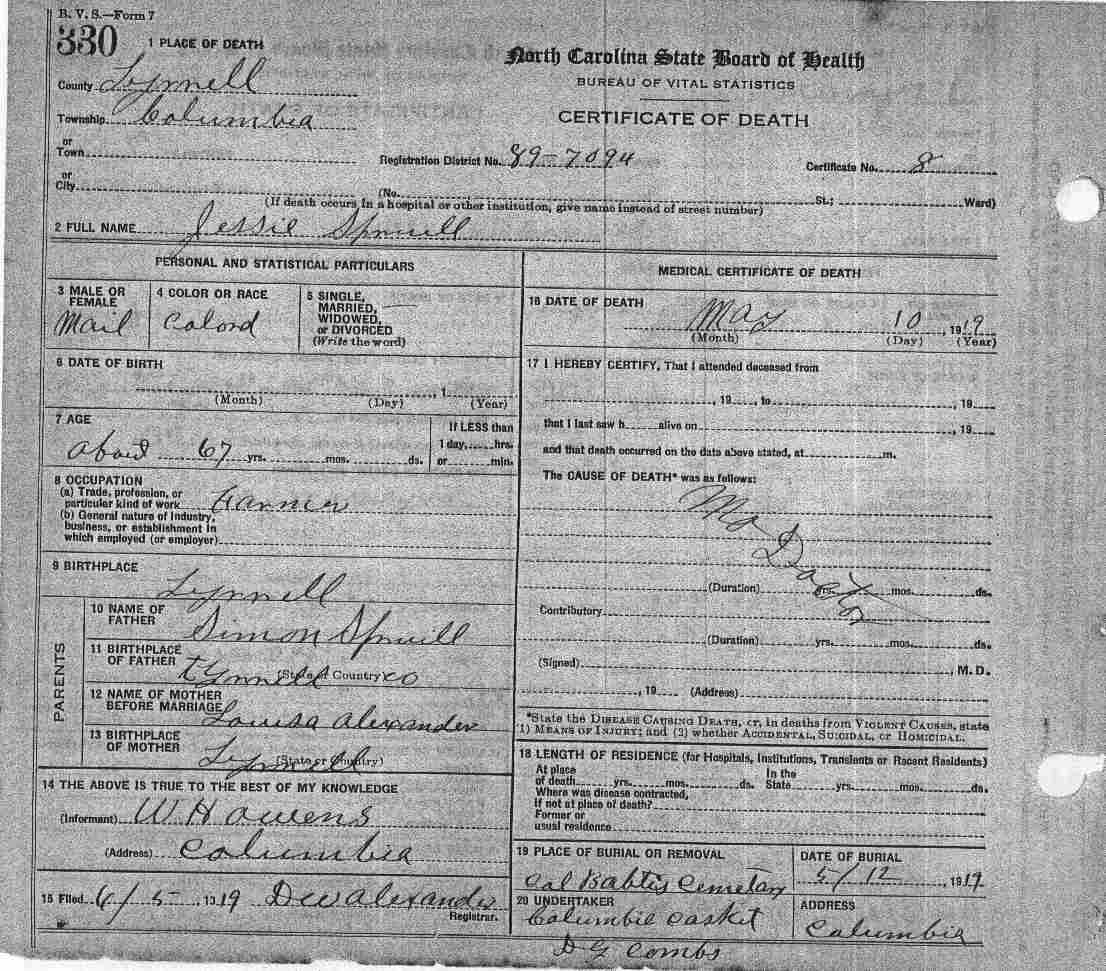 B. V. S.—Form 7
330
1 PLACE OF DEATH
County Tyrrell
Township Columbia
or
Town
or
City
North Carolina State Board of Health
BUREAU OF VITAL STATISTICS
CERTIFICATE OF DEATH
Registration District No. 89-7094 Certificate No. 8
(No. St.; Ward)
(If death occurs in a hospital or other institution, give name instead of street number)
2 FULL NAME Jessie Spruill
PERSONAL AND STATISTICAL PARTICULARS
3 MALE OR FEMALE
Mail
4 COLOR OR RACE
Colord
5 SINGLE,
MARRIED,
WIDOWED,
or DIVORCED
(Write the word)
6 DATE OF BIRTH
, 1
(Month) (Day) (Year)
7 AGE
About 67 yrs. mos. ds.
If LESS than
1 day, hrs.
or min.
8 OCCUPATION
(a) Trade, profession, or
particular kind of work Farmer
(b) General nature of Industry,
business, or establishment in
which employed (or employer)
9 BIRTHPLACE
Tyrrell
PARENTS
10 NAME OF
FATHER
Simon Spruill
11 BIRTHPLACE
OF FATHER
(State or Country)
Tyrrell co
12 NAME OF MOTHER
BEFORE MARRIAGE
Louisa Alexander
13 BIRTHPLACE
OF MOTHER
(State or Country)
Tyrrell
14 THE ABOVE IS TRUE TO THE BEST OF MY KNOWLEDGE
(Informant) W H Owens
(Address) Columbia
15 Filed 6/5, 1919
Alexander
Registrar.
MEDICAL CERTIFICATE OF DEATH
16 DATE OF DEATH
May 10, 1919
(Month) (Day) (Year)
17 I HEREBY CERTIFY, That I attended deceased from
, 19 , to , 19
that I last saw h alive on , 19
and that death occurred on the date above stated, at m.
The CAUSE OF DEATH* was as follows:
(Duration) yrs. mos. ds.
Contributory
(Duration) yrs. mos. ds.
(Signed) , M. D.
, 19 (Address)
*State the DISEASE CAUSING DEATH, or, in deaths from VIOLENT CAUSES, state
(1) MEANS OF INJURY; and (2) whether ACCIDENTAL, SUICIDAL, or HOMICIDAL.
18 LENGTH OF RESIDENCE (for Hospitals, Institutions, Transients or Recent Residents)
At place
of death yrs. mos. ds.
In the
State yrs. mos. ds.
Where was disease contracted,
If not at place of death?
Former or
usual residence
19 PLACE OF BURIAL OR REMOVAL
Col Babtis Cemetary
DATE OF BURIAL
5/12, 1919
20 UNDERTAKER
Columbia Casket
D G Combs
ADDRESS
Columbia